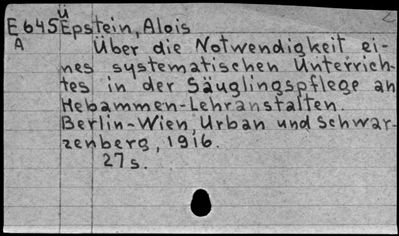 Ü
E645 Epstein, Alois
A Über die Notwendigkeit ei-
nes systematischen Unterrich-
tes in der Säuglingspflege an
Hebammen-Lehranstalten.
Berlin-Wien, Urban und Schwar-
zenberg, 1916.
27s.